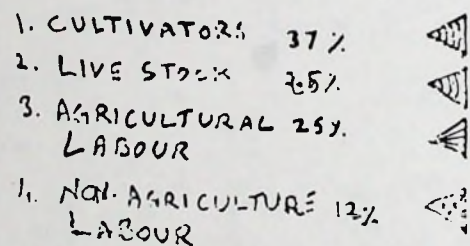 1. CULTIVATORS 37%
2. LIVE STOCK
3. AGRICULTURAL 25%
LABOUR
4. NON. AGRICULTURE 12%
LABOUR